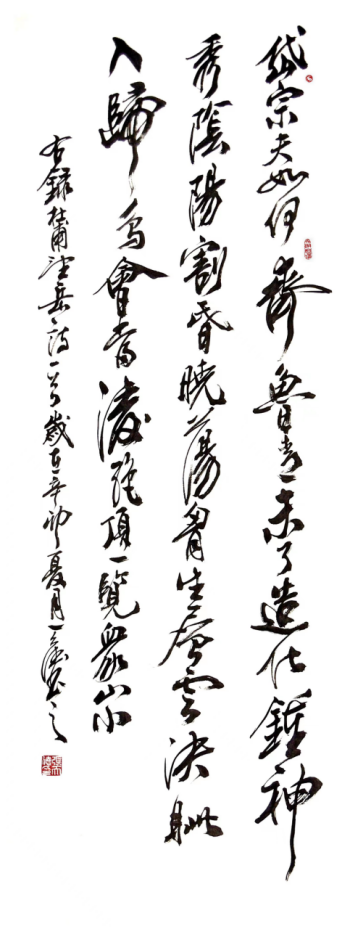 岱宗夫如何齊魯青未了造化鍾神
秀陰陽割昏曉蕩胷生層雲決眦
入歸鳥會當凌絶頂一覽衆山小
右録杜甫望岳詩一首歲在辛卯夏月一書之